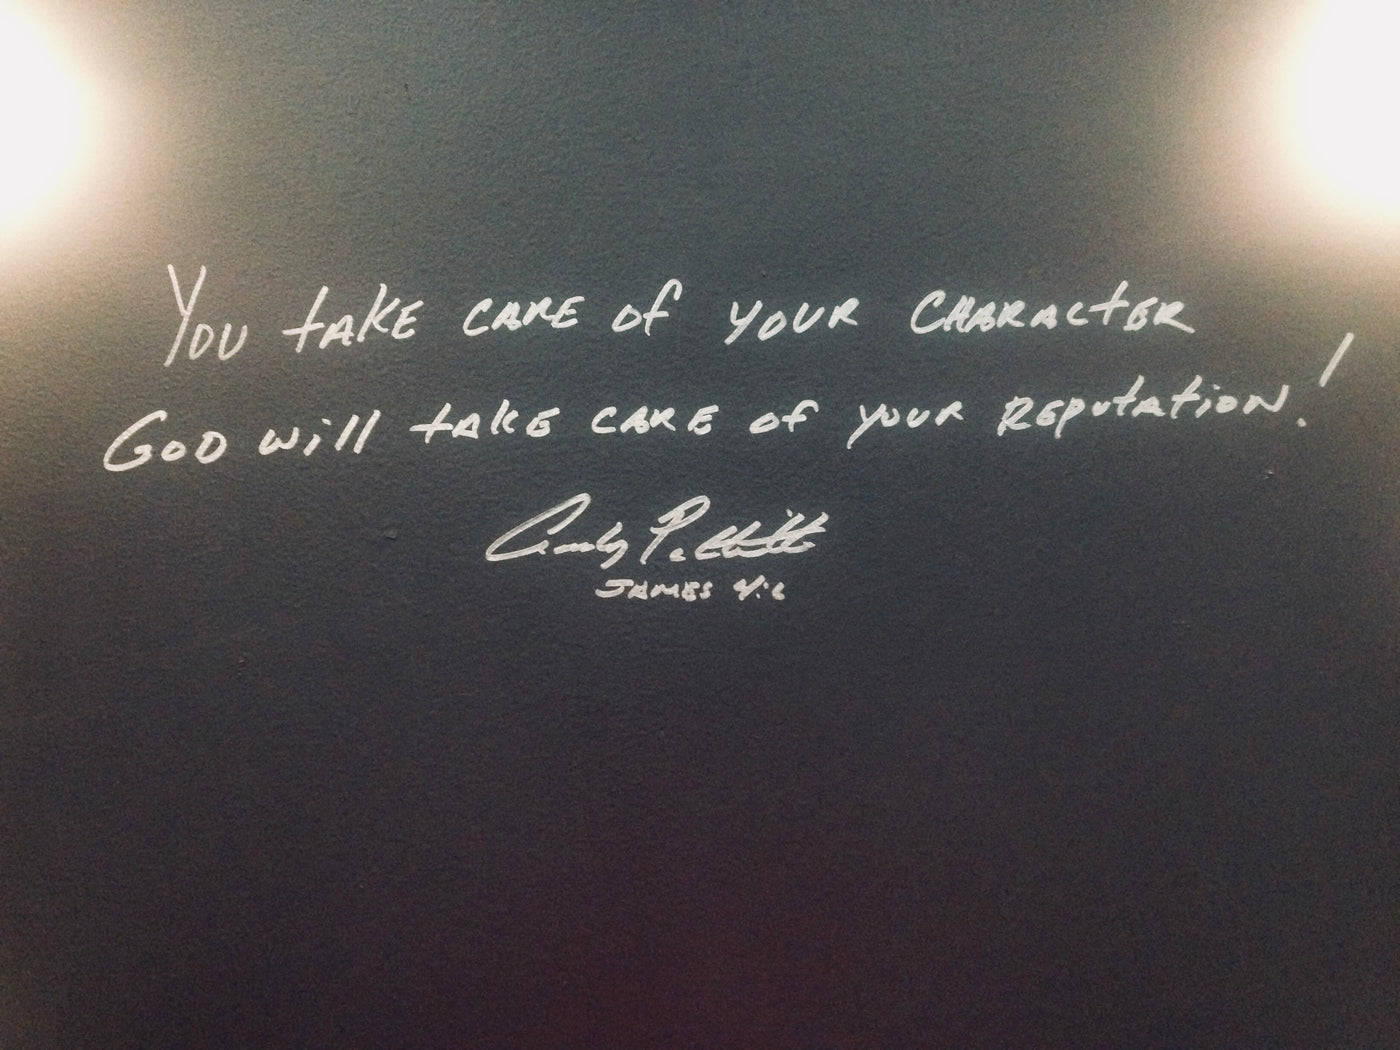 You take care of your character
God will take care of your reputation!
Andy Pettitte
James 4:6